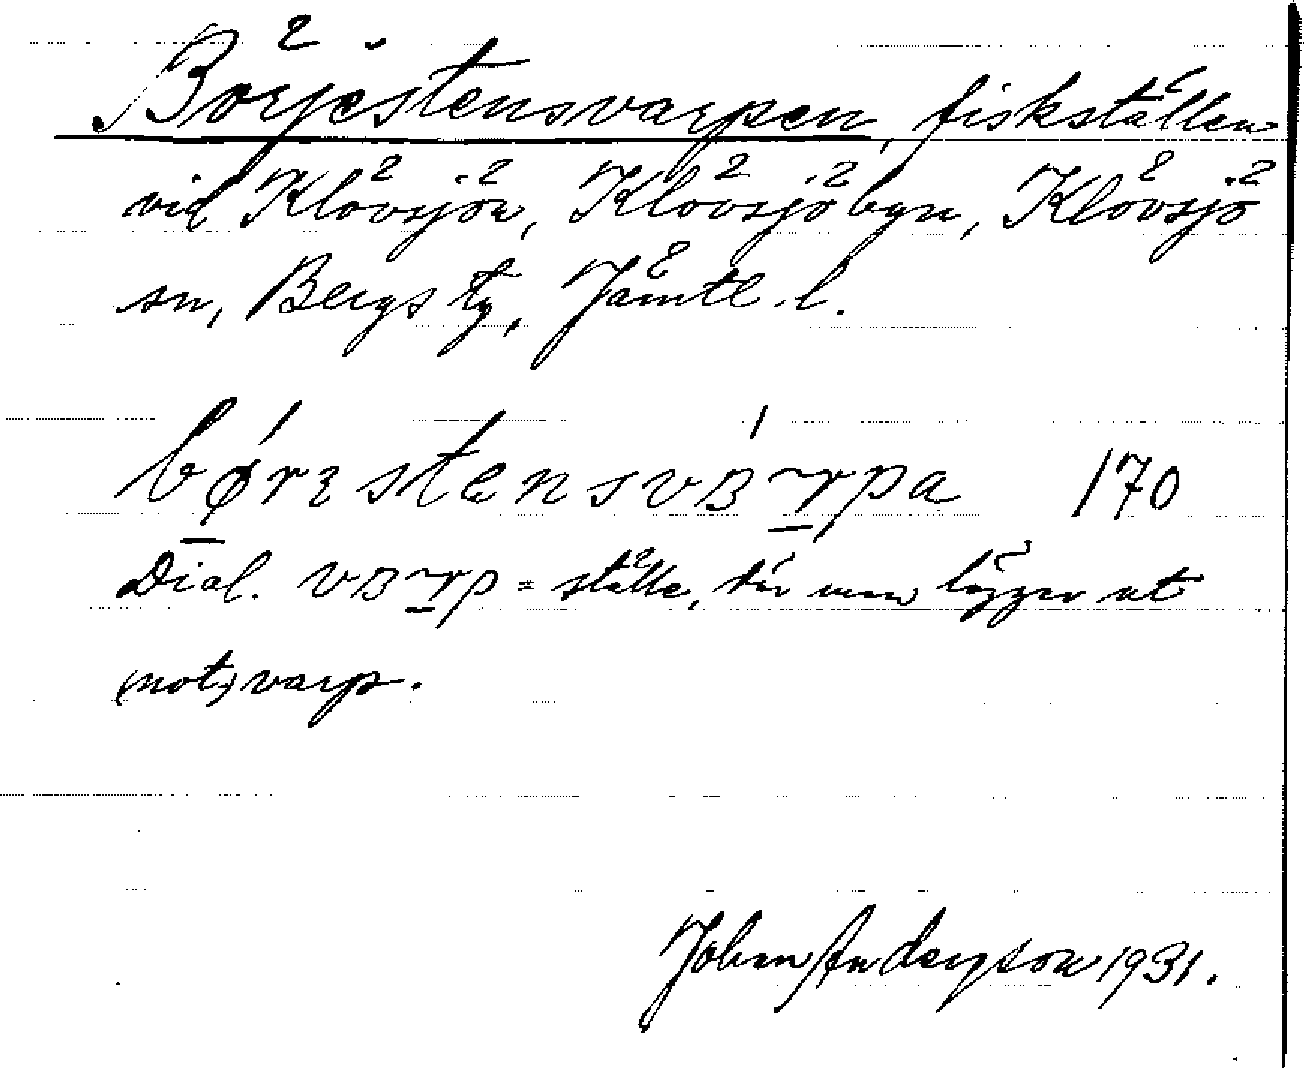 Börjestensvarpen, fiskställen
vid Klövsjön, Klövsjöbyn, Klövsjö
sn, Bergs tg, Jämtl. l.
børɛstensvᴃrpa 170
Dial. vᴃrp = ställe, där man lägger ut
(not)varp.
Johan Andersson 1931.